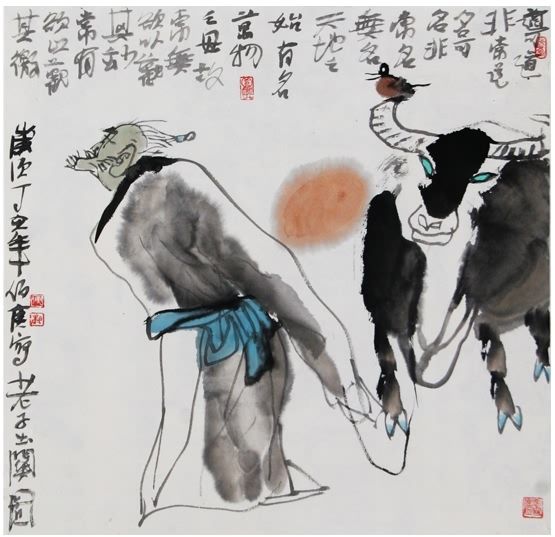 道可道
非常道
名可名非
常名
無名
天地之
始有名
萬物
之母故
常無
欲以觀
其妙
常有
欲以觀
其徼
歲次丁丑年寫老子出關圖